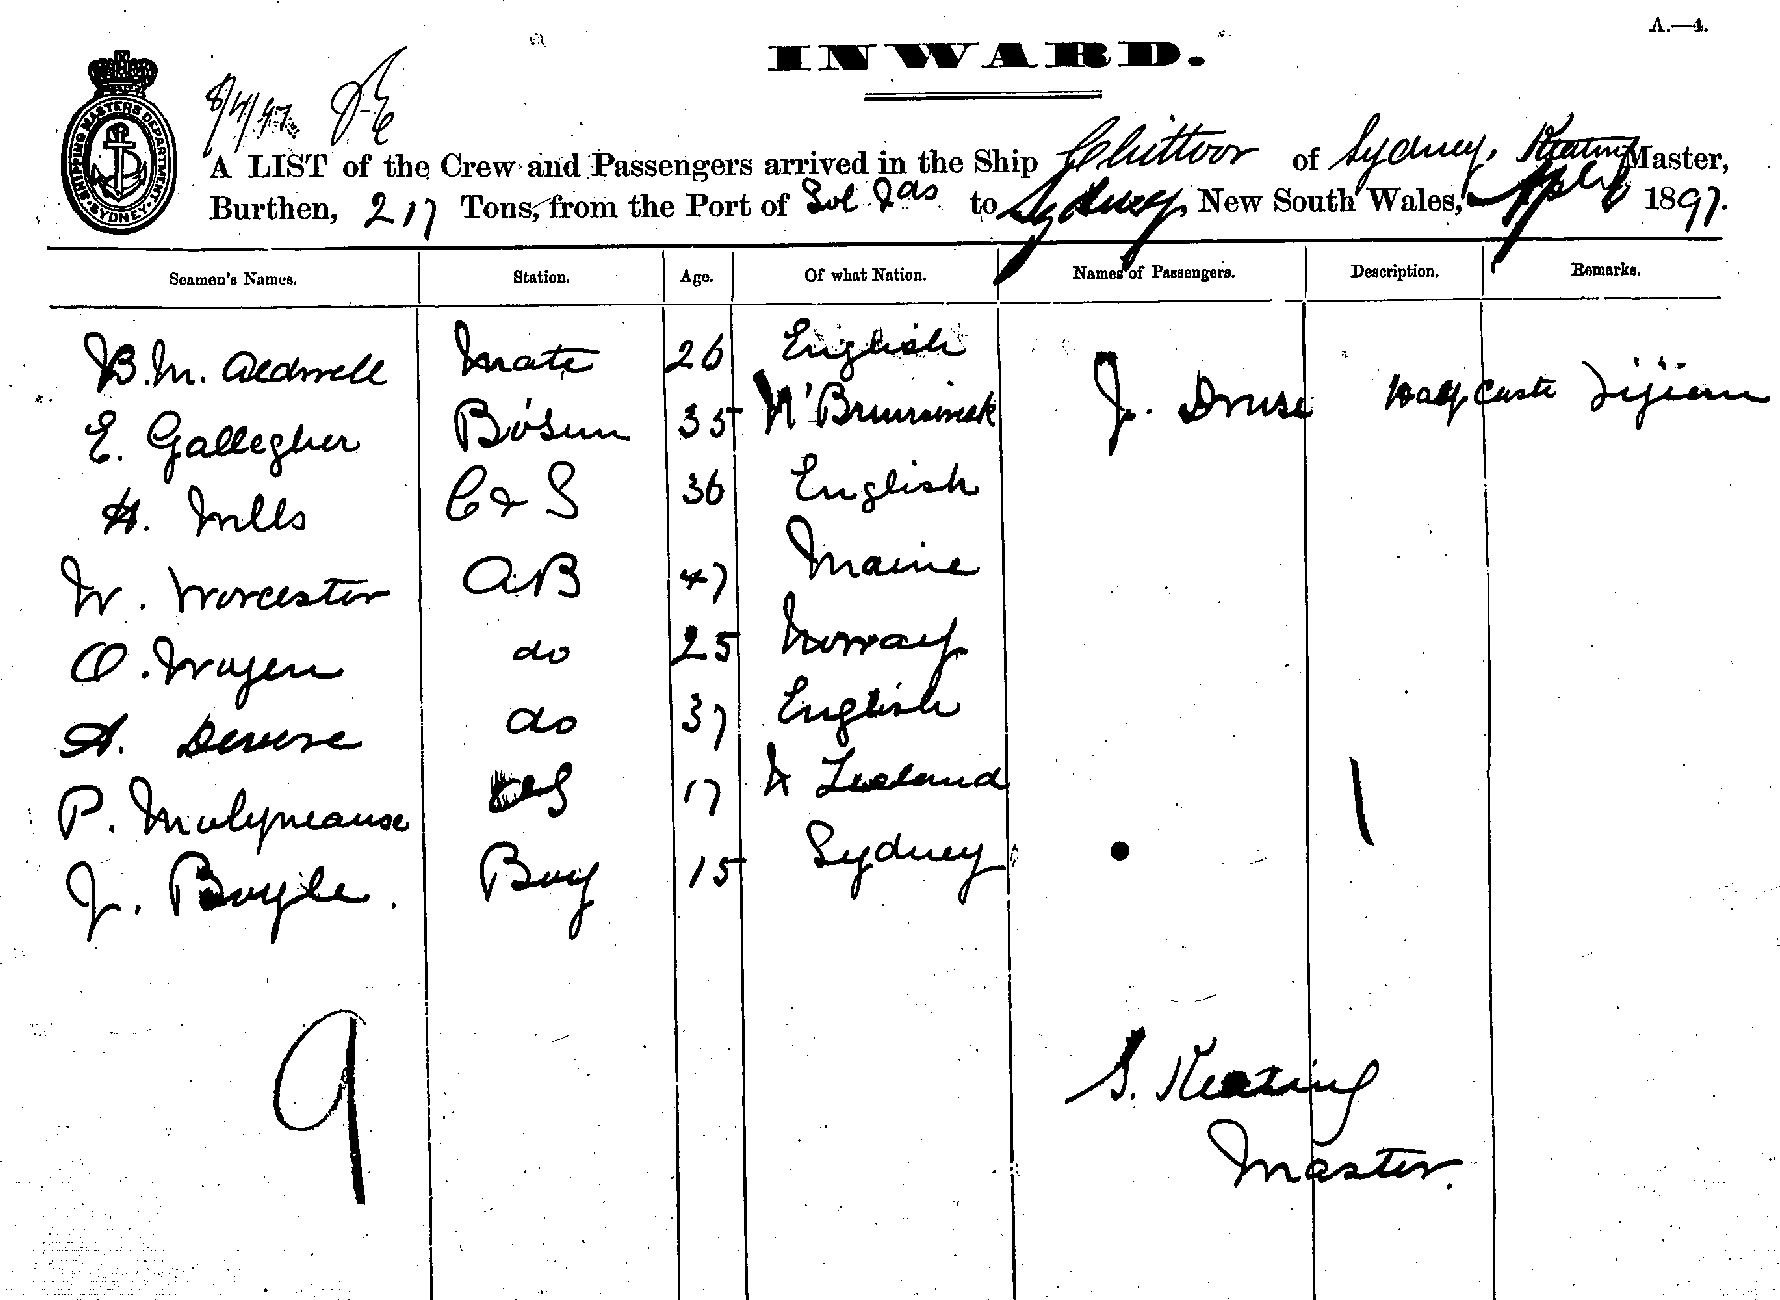 A.—4.
INWARD.
SHIPPING MASTERS DEPARTMENT SYDNEY
8/4/97
A LIST of the Crew and Passengers arrived in the Ship Chittoor of Sydney, Keating Master,
Burthen, 217 Tons, from the Port of Sol Ids to Sydney, New South Wales, 1897.
Seamen's Names. Station. Age. Of what Nation. Names of Passengers. Description. Remarks.
B. M. Aldwell Mate 26 English
E. Gallegher Bo'sun 35 N' Brunswick J. Druse Half Caste Fijian
H. Mills C & S 36 English
W. Worcester AB 47 Maine
O. do 25 Norway
A. do 37 English
P. Molyneause OS 17 N Zealand 1
J. Boyle. Boy 15 Sydney
9
S. Keating
Master.